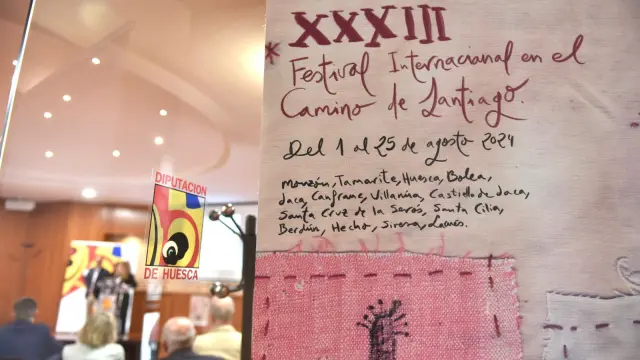 XXXIII
* Festival Internacional en el
Camino de Santiago.
Del 1 al 25 de agosto 2024
Monzón, Tamarite, Huesca, Bolea,
Jaca, Canfranc, Villanúa, Castiello de Jaca,
Santa Cruz de la Serós, Santa Cilia,
Berdún, Hecho, Siresa,
DIPUTACION
DE HUESCA